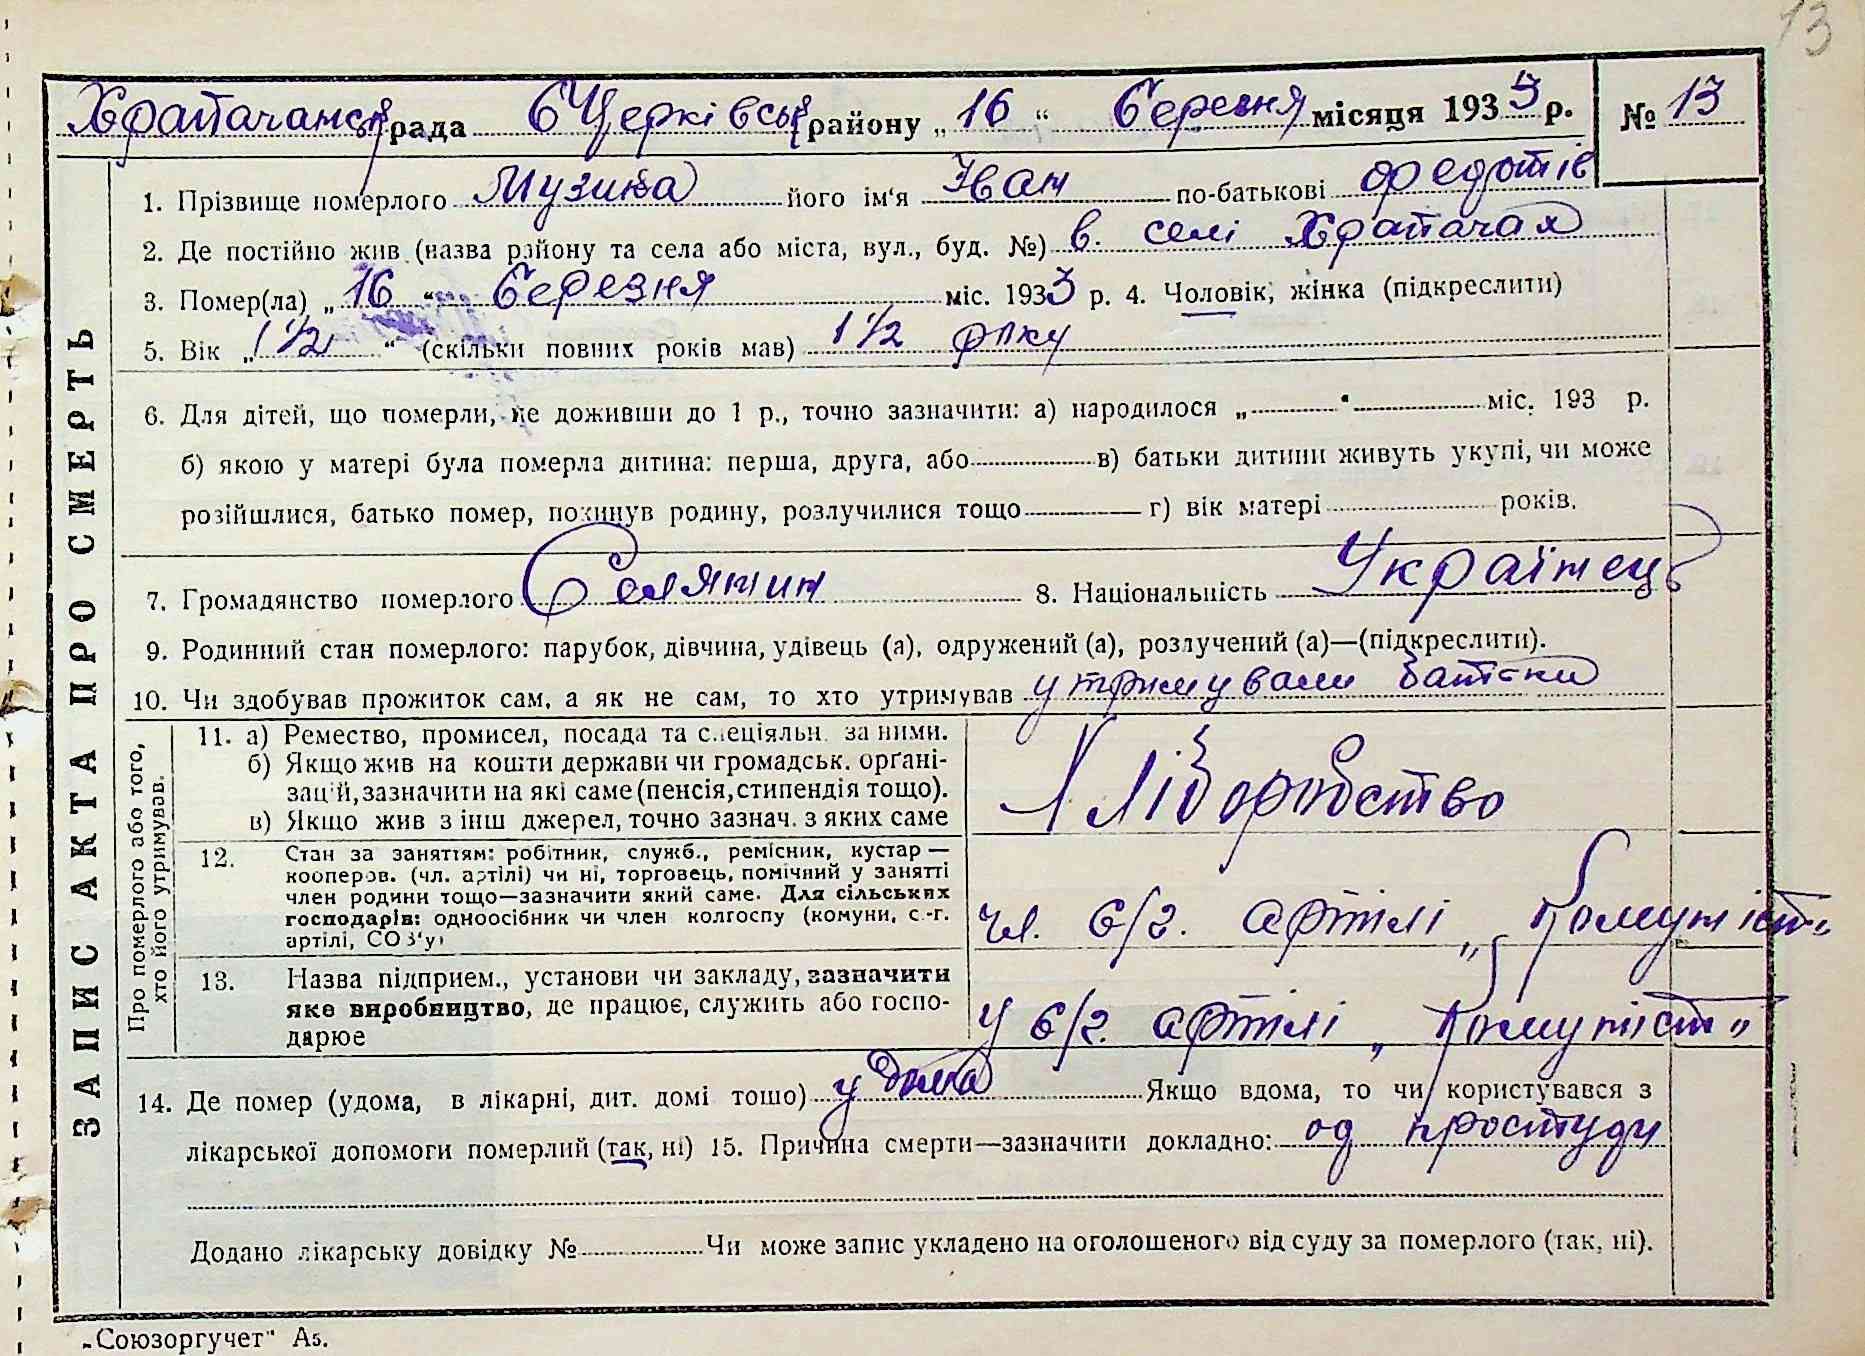 13
Храпачанська рада БЦерківськ району „16“ березня місяця 1933 р. № 13
ЗАПИС АКТА ПРО СМЕРТЬ
1. Прізвище померлого Музика його ім'я Іван по-батькові Федотів
2. Де постійно жив (назва району та села або міста, вул., буд. №) в селі Храпачах
3. Помер(ла) „16“ березня міс. 1933 р. 4. Чоловік, жінка (підкреслити)
5. Вік „1 1/2“ (скільки повних років мав) 1 1/2 року
6. Для дітей, що померли, не доживши до 1 р., точно зазначити: а) народилося „ “ міс. 193 р.
б) якою у матері була померла дитина: перша, друга, або в) батьки дитини живуть укупі, чи може
розійшлися, батько помер, покинув родину, розлучилися тощо г) вік матері років.
7. Громадянство померлого Селянин 8. Національність Українець
9. Родинний стан померлого: парубок, дівчина, удівець (а), одружений (а), розлучений (а)—(підкреслити).
10. Чи здобував прожиток сам, а як не сам, то хто утримував утримували батьки
Про померлого або того, хто його утримував.
11. а) Ремество, промисел, посада та спеціяльн. за ними.
б) Якщо жив на кошти держави чи громадськ. орґані-
зацій, зазначити на які саме (пенсія, стипендія тощо).
в) Якщо жив з інш джерел, точно зазнач. з яких саме
Хліборобство
12. Стан за заняттям: робітник, служб., ремісник, кустар—
кооперов. (чл. артілі) чи ні, торговець, помічний у занятті
член родини тощо—зазначити який саме. Для сільських
господарів: одноосібник чи член колгоспу (комуни, с.-г.
артілі, СОЗ'у)
чл. с/г. артілі „Комуніст“
13. Назва підприєм., установи чи закладу, зазначити
яке виробництво, де працює, служить або госпо-
дарює
у с/г. артілі „Комуніст“
14. Де помер (удома, в лікарні, дит. домі тощо) у дома Якщо вдома, то чи користувався з
лікарської допомоги померлий (так, ні) 15. Причина смерти—зазначити докладно: од простуди
Додано лікарську довідку № Чи може запис укладено на оголошеного від суду за померлого (так, ні).
„Союзоргучет“ А5.